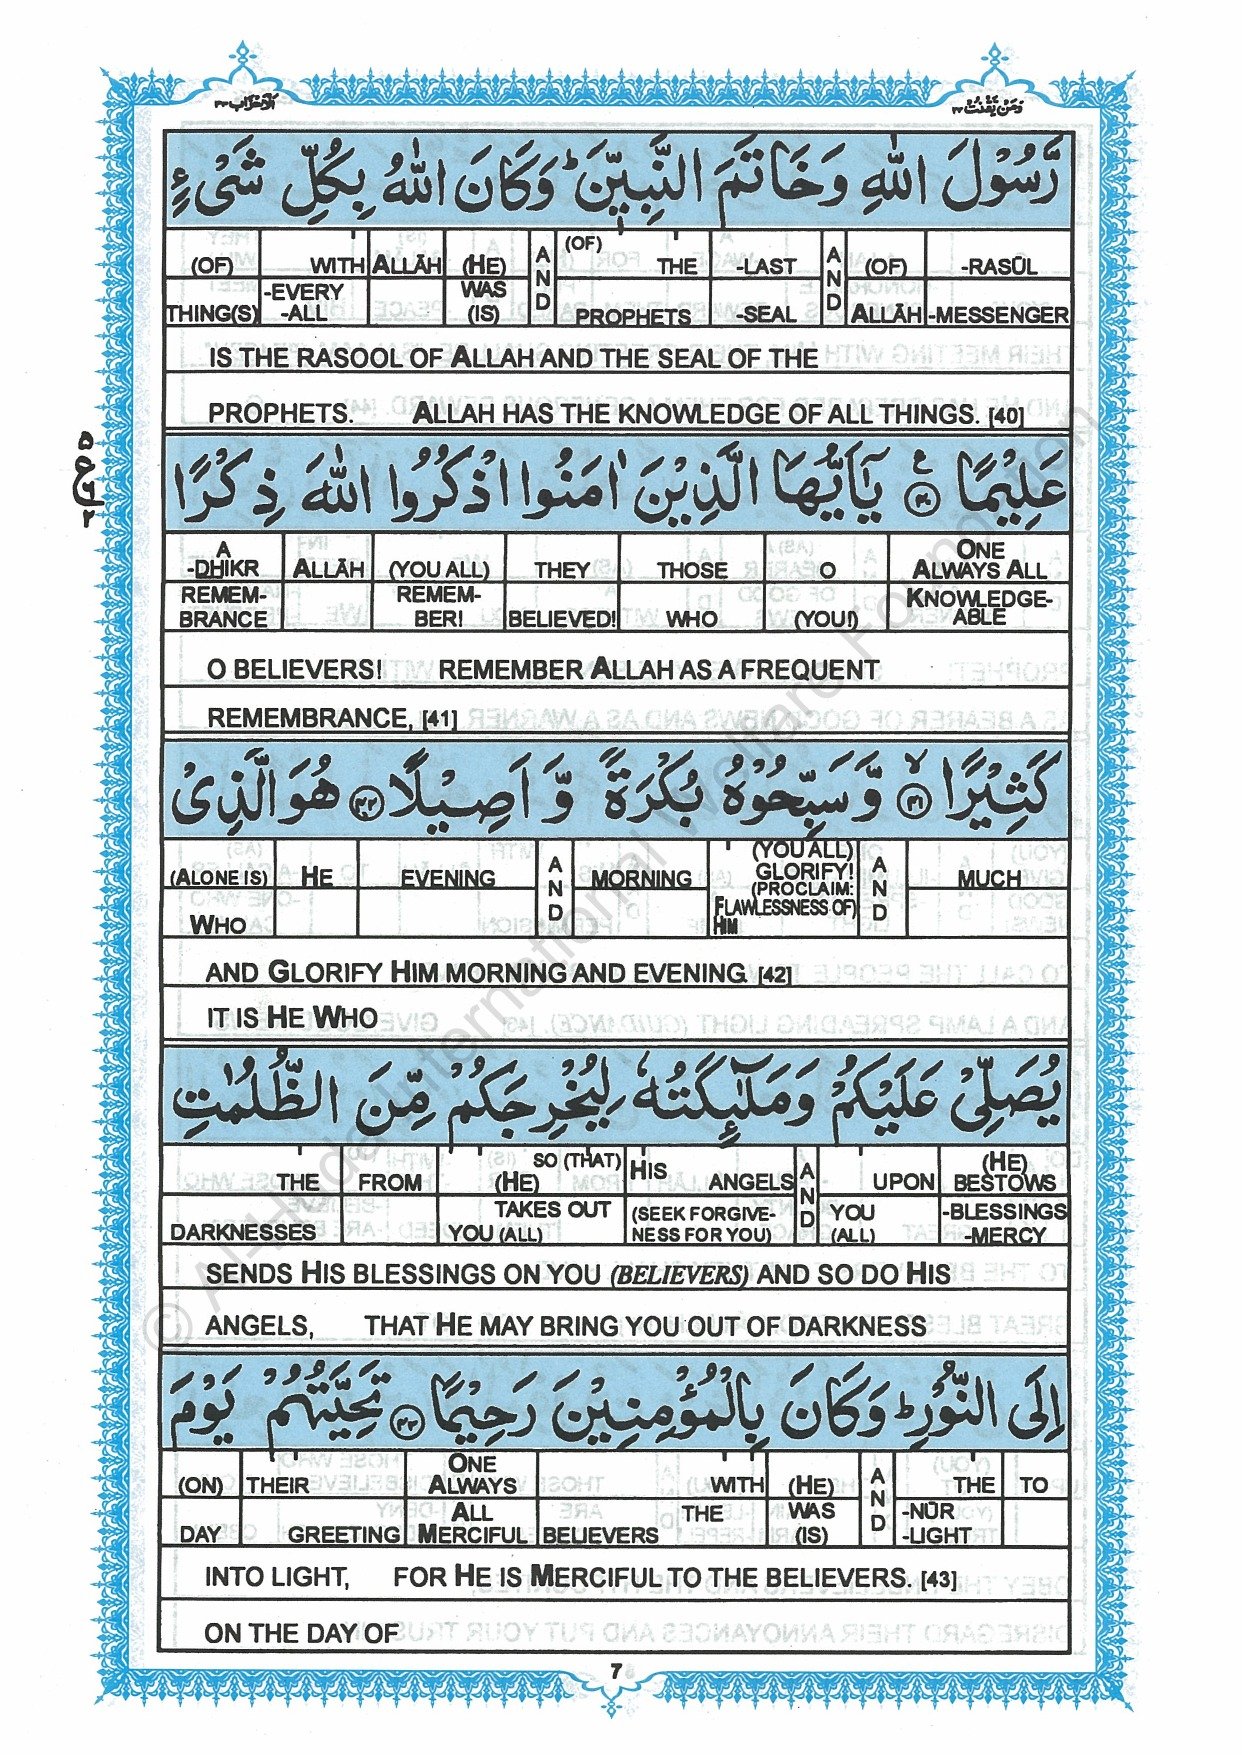 وَمَنْ يَّقْنُتْ ٢٢
الْاَحْزَاب ٣٣
رَّسُوْلَ اللّٰهِ وَخَاتَمَ النَّبِيّٖنَ ؕ وَكَانَ اللّٰهُ بِكُلِّ شَىْءٍ
(OF) WITH ALLĀH (HE) AND (OF) THE -LAST AND (OF) -RASŪL
THING(S) -EVERY -ALL WAS (IS) PROPHETS -SEAL ALLĀH -MESSENGER
IS THE RASOOL OF ALLAH AND THE SEAL OF THE
PROPHETS. ALLAH HAS THE KNOWLEDGE OF ALL THINGS. [40]
عَلِيْمًا ۧ ﴿۴۰﴾ يٰۤاَيُّهَا الَّذِيْنَ اٰمَنُوا اذْكُرُوا اللّٰهَ ذِكْرًا
A -DHIKR ALLĀH (YOU ALL) THEY THOSE O ONE ALWAYS ALL
REMEM-BRANCE REMEM-BER! BELIEVED! WHO (YOU!) KNOWLEDGE-ABLE
O BELIEVERS! REMEMBER ALLAH AS A FREQUENT
REMEMBRANCE, [41]
كَثِيْرًا ۙ ﴿۴۱﴾ وَّ سَبِّحُوْهُ بُكْرَةً وَّ اَصِيْلًا ﴿۴۲﴾ هُوَ الَّذِىْ
(ALONE IS) HE EVENING AND MORNING (YOU ALL) GLORIFY! (PROCLAIM: AND MUCH
WHO FLAWLESSNESS OF) HIM
AND GLORIFY HIM MORNING AND EVENING. [42]
IT IS HE WHO
يُصَلِّىْ عَلَيْكُمْ وَمَلٰٓئِكَتُهٗ لِيُخْرِجَكُمْ مِّنَ الظُّلُمٰتِ
THE FROM SO (THAT) (HE) HIS ANGELS AND UPON (HE) BESTOWS
DARKNESSES TAKES OUT YOU (ALL) (SEEK FORGIVE-NESS FOR YOU) YOU (ALL) -BLESSINGS -MERCY
SENDS HIS BLESSINGS ON YOU (BELIEVERS) AND SO DO HIS
ANGELS, THAT HE MAY BRING YOU OUT OF DARKNESS
اِلَى النُّوْرِ ؕ وَكَانَ بِالْمُؤْمِنِيْنَ رَحِيْمًا ﴿۴۳﴾ تَحِيَّتُهُمْ يَوْمَ
(ON) THEIR ONE ALWAYS WITH (HE) AND THE TO
DAY GREETING ALL MERCIFUL BELIEVERS THE WAS (IS) -NŪR -LIGHT
INTO LIGHT, FOR HE IS MERCIFUL TO THE BELIEVERS. [43]
ON THE DAY OF
7
© Al-Huda International Welfare Foundation